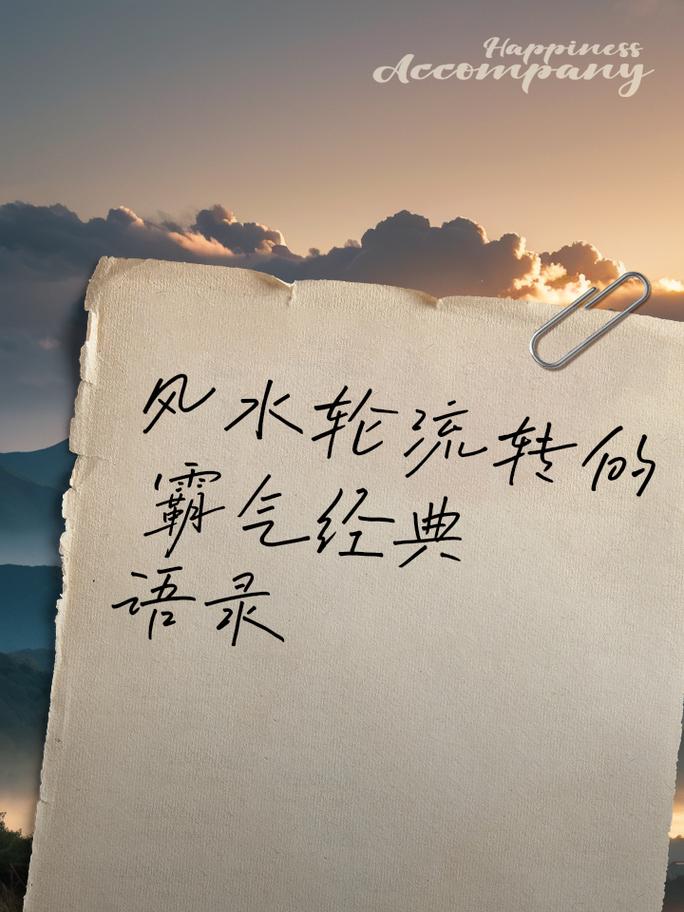 Happiness
Accompany
风水轮流转的
霸气经典
语录